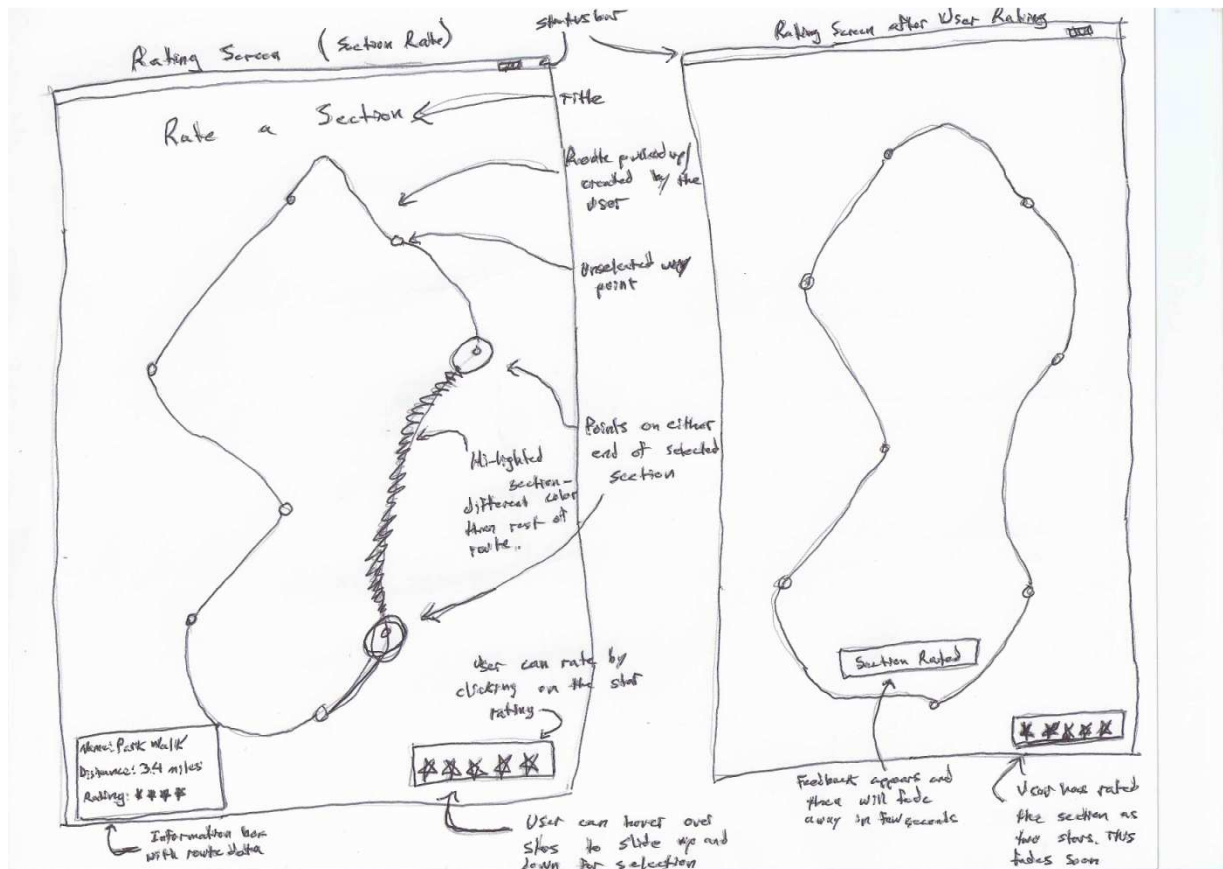 Rating Screen (Section Rate)
Status bar
Rating Screen after User Rating
Title
Rate a Section
Route pulled up/
created by the
User
Unselected way
point
Points on either
end of selected
section
Hi-lighted
section-
different color
than rest of
route.
User can rate by
clicking on the star
rating
Name: Park Walk
Distance: 3.4 miles
Rating: ★★★★
Information box
with route data
User can hover over
to slide up and
down for selection
Section Rated
Feedback appears and
then will fade
away in few seconds
User has rated
the section as
two stars. This
fades soon